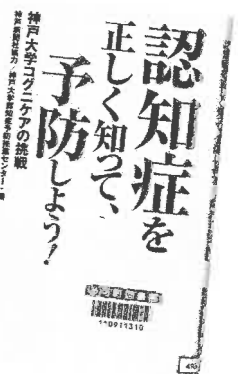 認知症を
正しく知って、
予防しよう!
神戸大学コグニケアの挑戦
神戸新聞社協力/神戸大学認知症予防推進センター・著
110911310